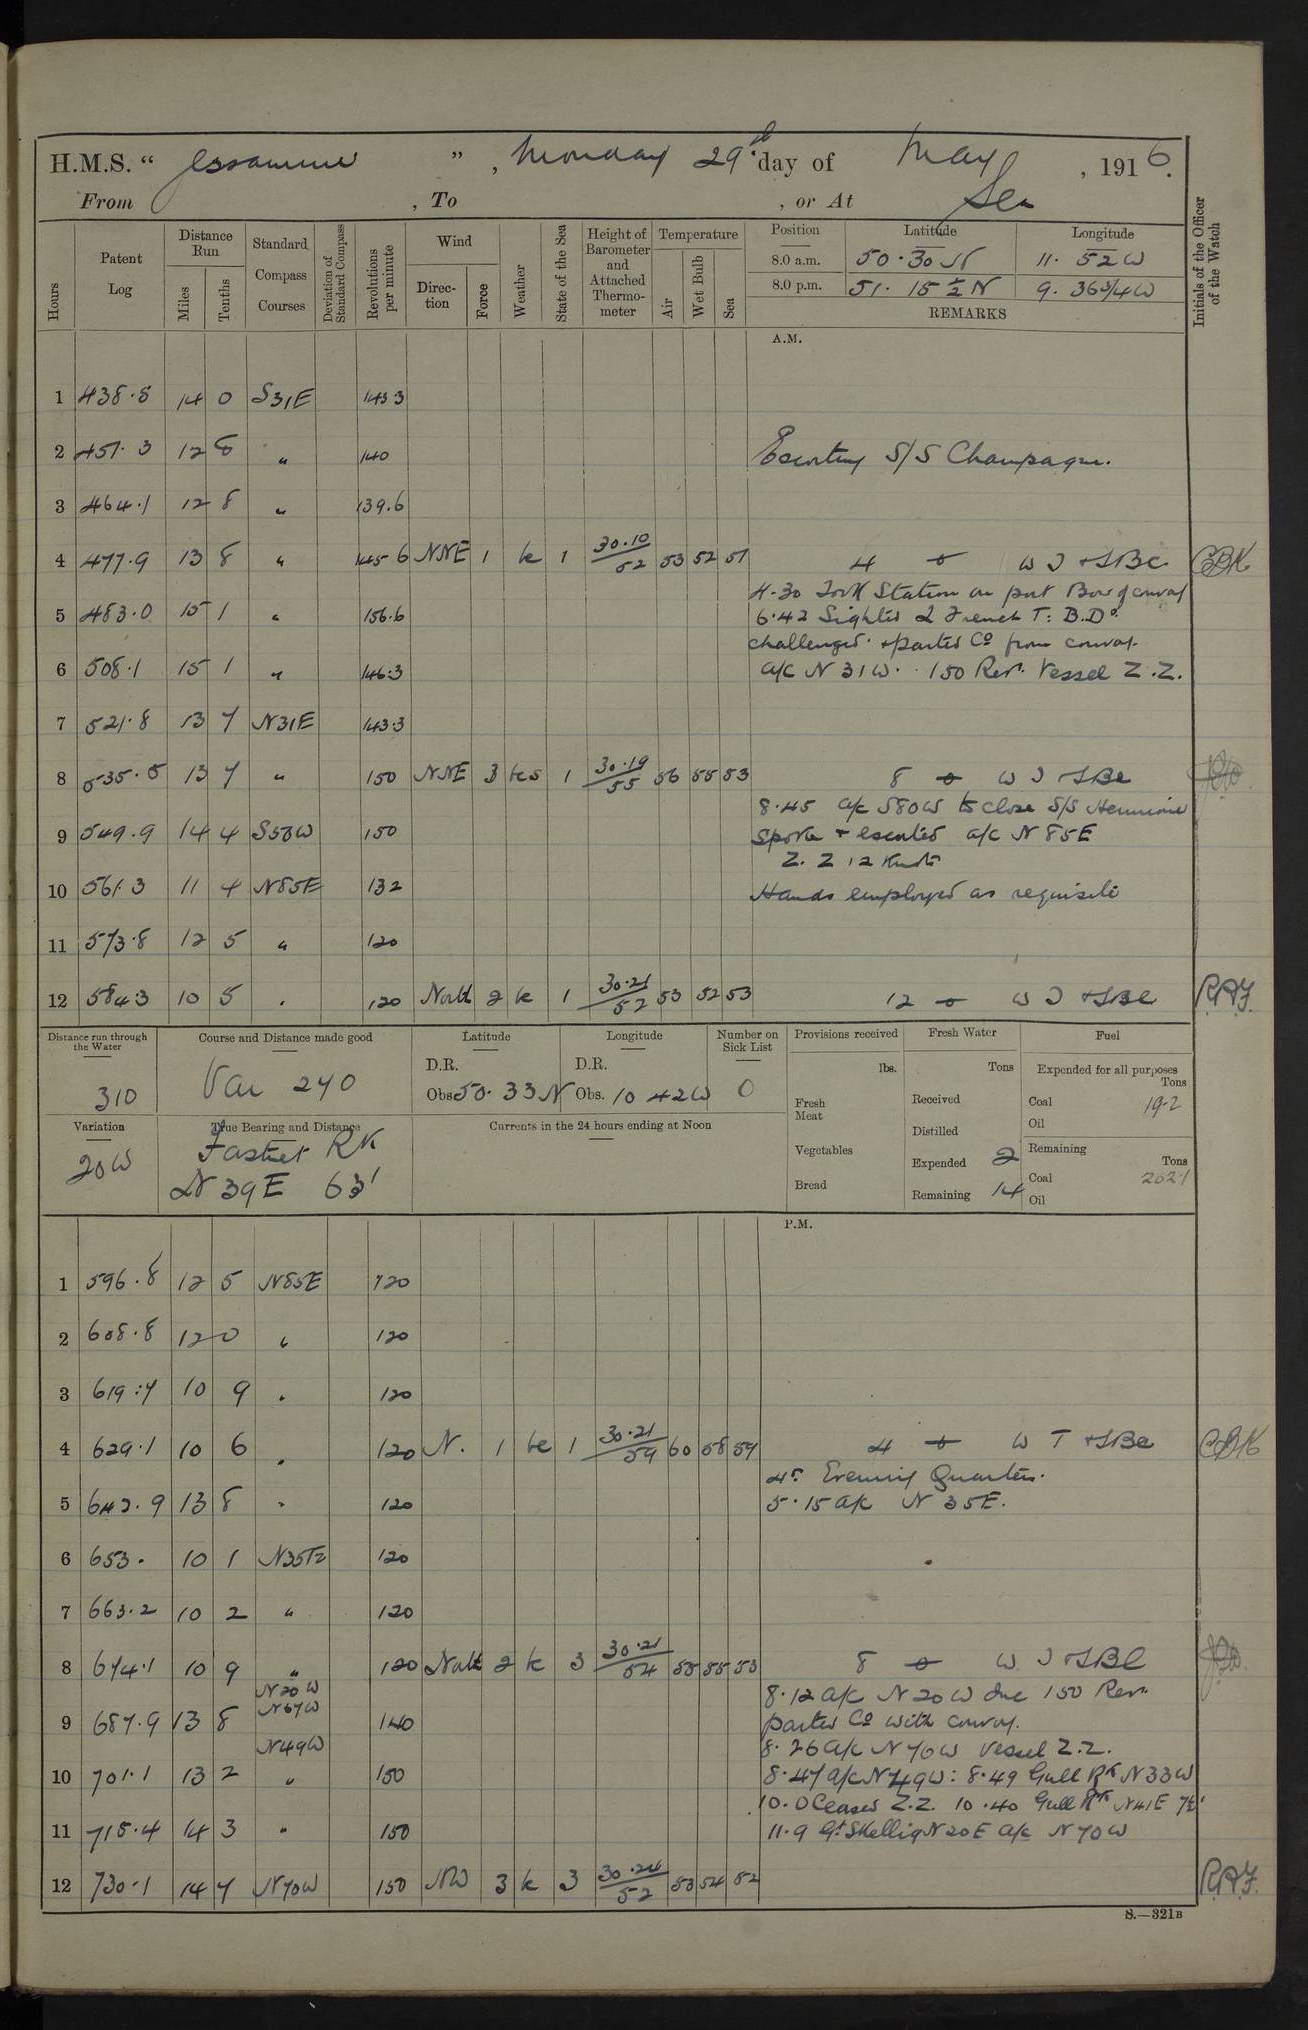 H.M.S. “ Jessamine ” , Monday 29th day of May , 1916.
From , To , or At Sea
Hours
Patent Log
Distance Run
Miles
Tenths
Standard Compass Courses
Deviation of Standard Compass
Revolutions per minute
Wind
Direction
Force
Weather
State of the Sea
Height of Barometer and Attached Thermometer
Temperature
Air
Wet Bulb
Sea
Position
Latitude
Longitude
8.0 a.m. 50.30 N 11. 52 W
8.0 p.m. 51. 15 ½ N 9. 36 3/4 W
REMARKS
Initials of the Officer of the Watch
A.M.
1 438.5 14 0 S31E 143.3
2 451.3 12 8 " 140 Escorting S/S Champagne.
3 464.1 12 8 " 139.6
4 477.9 13 8 " 145.6 NNE 1 1 30.10/52 53 52 51
4.30 Took Station on port Bow of convoy
5 483.0 15 1 " 156.6 6.42 Sighted 2 French T.B.Ds
challenged & parted Co from convoy.
6 508.1 15 1 " 146.3 a/c N 31 W. 150 Revs. Vessel Z.Z.
7 521.8 13 7 N31E 143.3
8 535.5 13 7 " 150 NNE 3 1 30.19/55 56 55 53
8.45 a/c S80W to close S/S Herminie
9 549.9 14 4 S53W 150 spoke & escorted a/c N 85E
Z.Z 12 Knots
10 561.3 11 4 N85E 132 Hands employed as requisite
11 573.8 12 5 " 120
12 584.3 10 5 . 120 North 2 1 30.21/52 53 52 53 R.A.F.
Distance run through the Water
310
Course and Distance made good
Var 240
Latitude
D.R.
Obs 50. 33 N
Longitude
D.R.
Obs. 10 42 W
Number on Sick List
0
Provisions received
lbs.
Fresh Meat
Vegetables
Bread
Fresh Water
Tons
Received
Distilled
Expended 2
Remaining 14
Fuel
Expended for all purposes
Tons
Coal 19.2
Oil
Remaining
Tons
Coal 202.1
Oil
Variation
20W
True Bearing and Distance
Fastnet RK
N 39 E 63'
Currents in the 24 hours ending at Noon
P.M.
1 596.8 12 5 N85E 120
2 608.8 12 0 " 120
3 619.7 10 9 . 120
4 629.1 10 6 . 120 N. 1 1 30.21/59 60 58 59 CBK
4. Evening Quarters.
5 642.9 13 8 " 120 5.15 a/c N 35E.
6 653. 10 1 N35E 120
7 663.2 10 2 " 120
8 674.1 10 9 " 120 North 2 3 30.21/54 55 55 53
N20W 8.12 a/c N 20 W Inc 150 Revs.
9 687.9 13 8 N67W 140 parted Co with convoy.
N49W 8.26 a/c N 70W Vessel Z.Z.
10 701.1 13 2 " 150 8.47 a/c N 49W: 8.49 Gull Rk N33W
10.0 Ceased Z.Z. 10.40 Gull Rk N41E 7½'
11 715.4 14 3 " 150 11.9 Gt Skellig N20E a/c N 70W
12 730.1 14 7 N70W 150 NW 3 3 30.24/52 53 54 52 R.A.F.
S.—321B